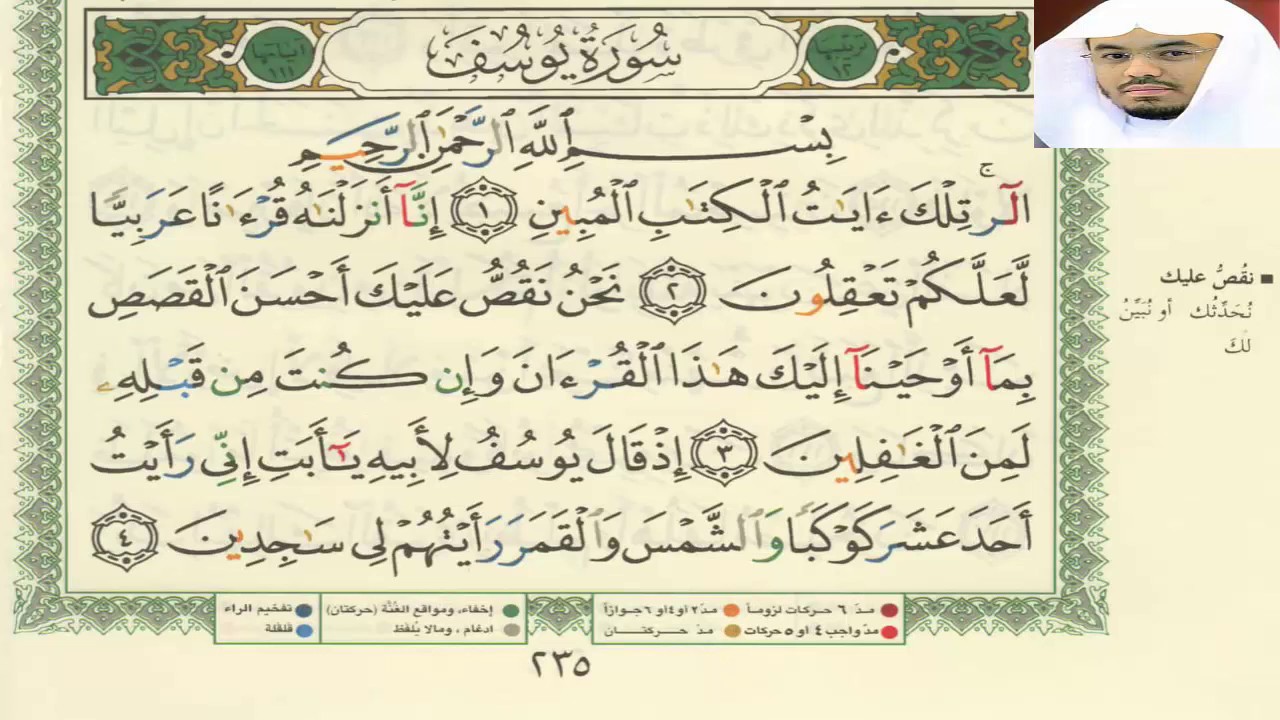 ترتيبها ١٢
سُورَةُ يُوسُفَ
آياتها ١١١
بِسْمِ ٱللَّهِ ٱلرَّحْمَٰنِ ٱلرَّحِيمِ
الٓرۚ تِلْكَ ءَايَٰتُ ٱلْكِتَٰبِ ٱلْمُبِينِ ١ إِنَّآ أَنزَلْنَٰهُ قُرْءَٰنًا عَرَبِيًّا
لَّعَلَّكُمْ تَعْقِلُونَ ٢ نَحْنُ نَقُصُّ عَلَيْكَ أَحْسَنَ ٱلْقَصَصِ
بِمَآ أَوْحَيْنَآ إِلَيْكَ هَٰذَا ٱلْقُرْءَانَ وَإِن كُنتَ مِن قَبْلِهِۦ
لَمِنَ ٱلْغَٰفِلِينَ ٣ إِذْ قَالَ يُوسُفُ لِأَبِيهِ يَٰٓأَبَتِ إِنِّى رَأَيْتُ
أَحَدَ عَشَرَ كَوْكَبًا وَٱلشَّمْسَ وَٱلْقَمَرَ رَأَيْتُهُمْ لِى سَٰجِدِينَ ٤
■ نقُصُّ عليك
نُحَدِّثُك أو نُبَيِّنُ
لكَ
مدّ ٦ حركات لزوماً مدّ ٢ أو ٤ او ٦ جوازاً
مدّ واجب ٤ أو ٥ حركات مدّ حركتان
إخفاء، ومواقع الغُنَّة (حركتان) تفخيم الراء
ادغام ، ومالا يُلفَظ قلقلة
٢٣٥